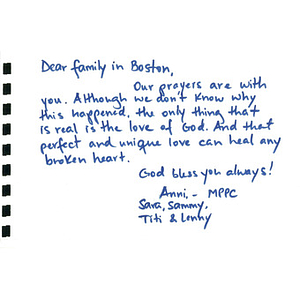 Dear family in Boston,
Our prayers are with
you. Although we don't know why
this happened, the only thing that
is real is the love of God. And that
perfect and unique love can heal any
broken heart.
God bless you always!
Anni,- MPPC
Sara, Sammy,
Titi & Lenny